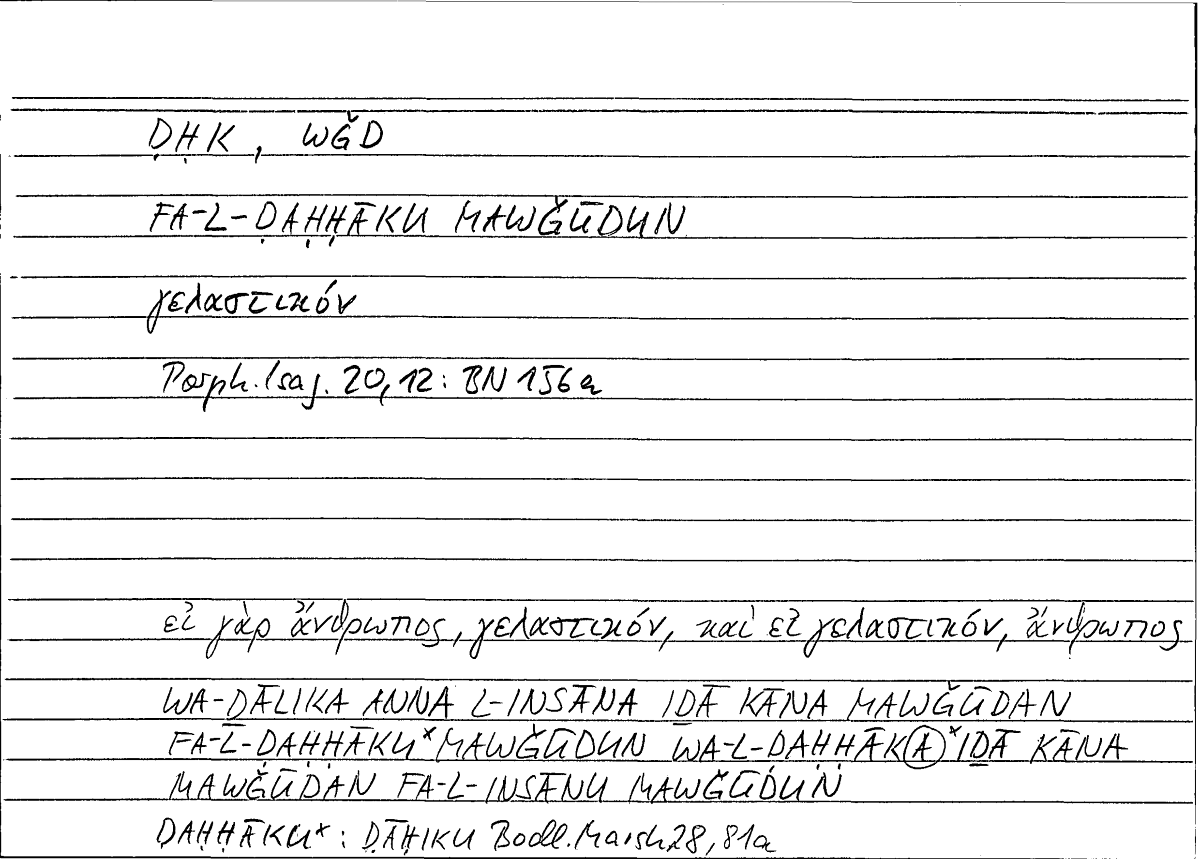 ḌḤK, WǦD
FA-L-ḌAḤḤĀKU MAWǦŪDUN
γελαστικόν
Porph. Isag. 20,12: BN 156a
εἰ γὰρ ἄνθρωπος, γελαστικόν, καὶ εἰ γελαστικόν, ἄνθρωπος
WA-ḎĀLIKA ANNA L-INSĀNA IḎĀ KĀNA MAWǦŪDAN
FA-L-ḌAḤḤĀKU* MAWǦŪDUN WA-L-ḌAḤḤĀKⒶ* IḎĀ KĀNA
MAWǦŪDAN FA-L-INSĀNU MAWǦŪDUN
ḌAḤḤĀKU*: ḌĀḤIKU Bodl. Marsh 28, 81a